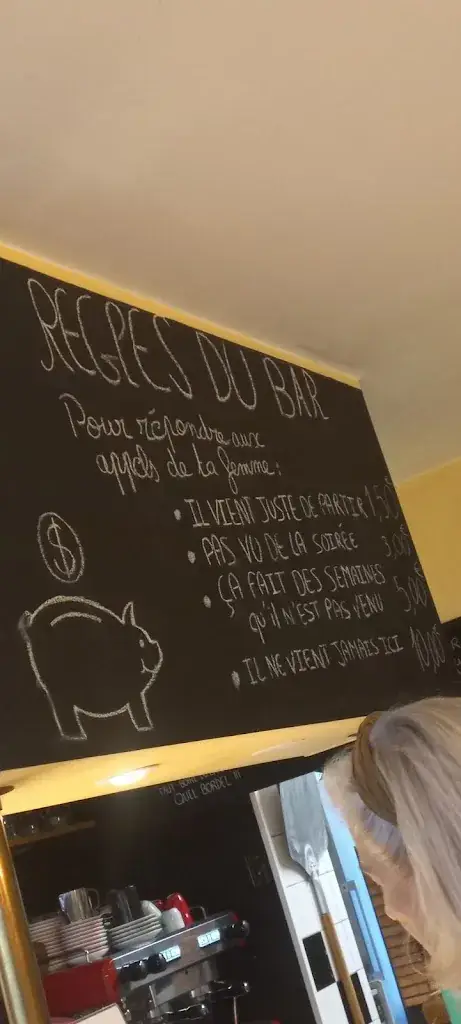 REGLES DU BAR
Pour répondre aux
appels de ta femme :
• IL VIENT JUSTE DE PARTIR 1,50
• PAS VU DE LA SOIRÉE 3,00
• ÇA FAIT DES SEMAINES
qu'il N'EST PAS VENU 5,00
• IL NE VIENT JAMAIS ICI 10,00
$
QUEL BORDEL !!!